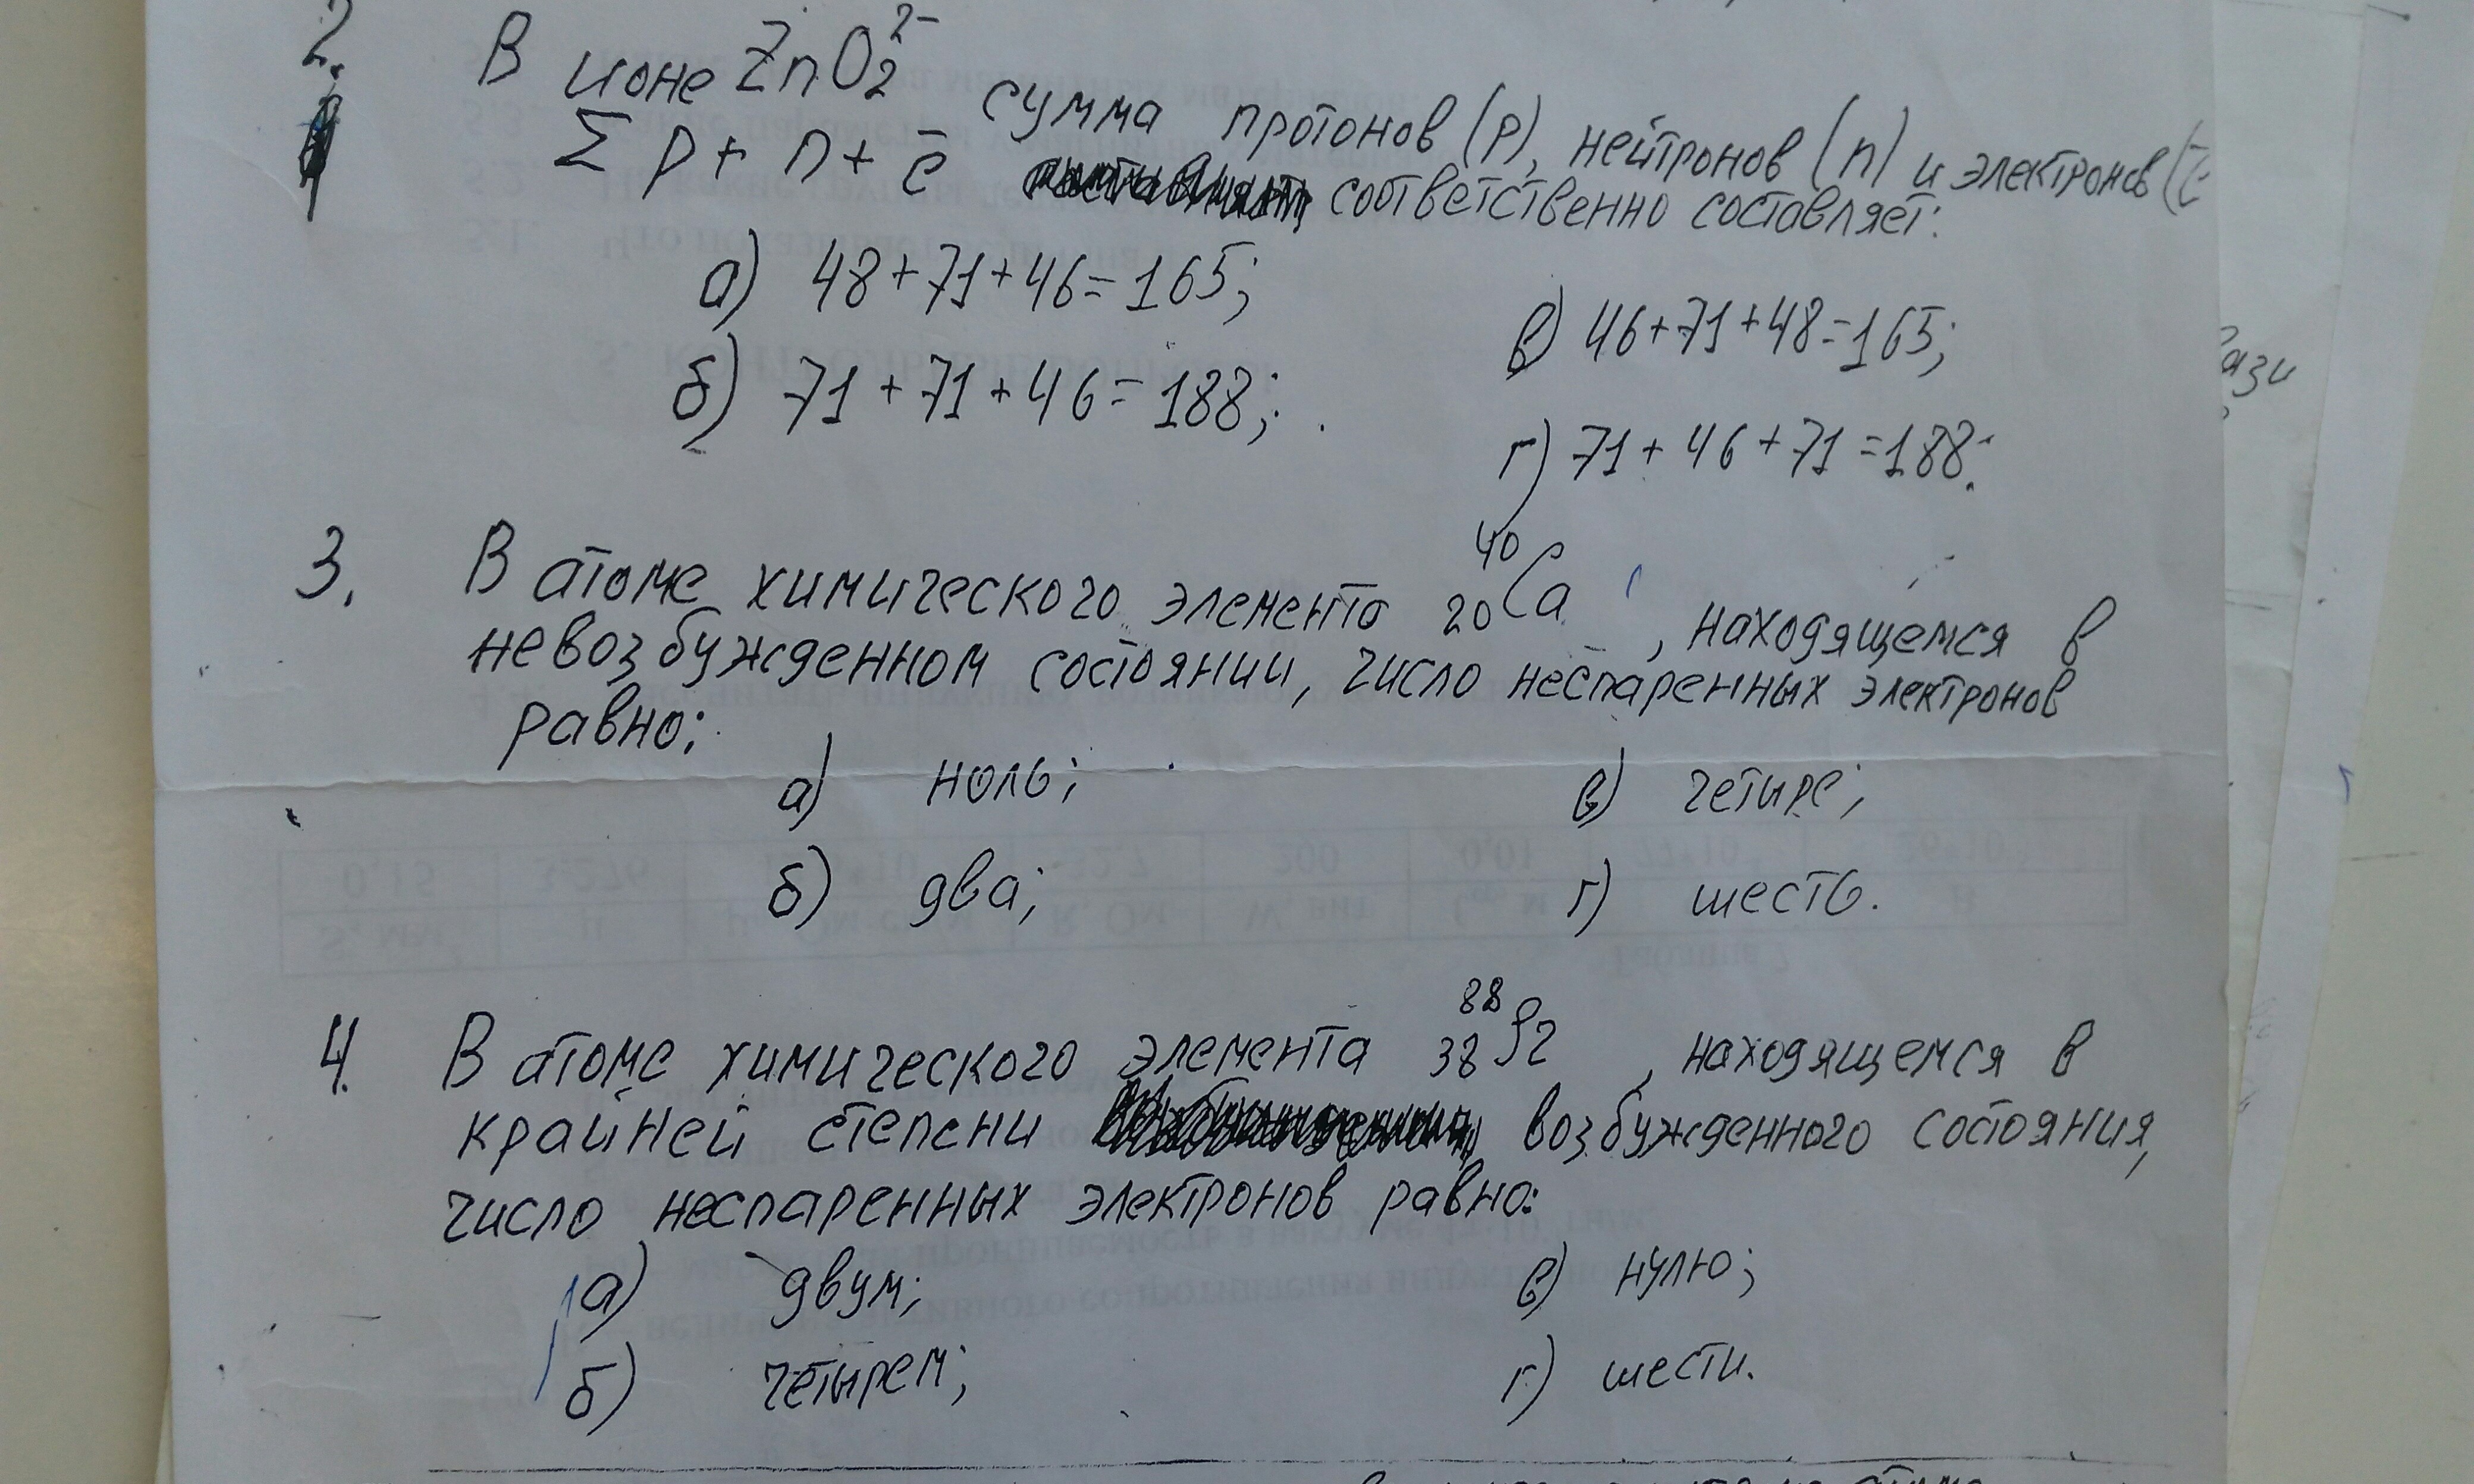 2. В ионе ZnO₂²⁻ сумма протонов (p), нейтронов (n) и электронов (ē
Σ p + n + ē соответственно составляет:
а) 48+71+46=165;
в) 46+71+48=165;
б) 71+71+46=188;
г) 71+46+71=188.
3. В атоме химического элемента ⁴⁰₂₀Ca, находящемся в
невозбужденном состоянии, число неспаренных электронов
равно:
а) ноль;
в) четыре;
б) два;
г) шесть.
4. В атоме химического элемента ⁸⁸₃₈Sr, находящемся в
крайней степени возбужденного состояния,
число неспаренных электронов равно:
а) двум;
в) нулю;
б) четырем;
г) шести.